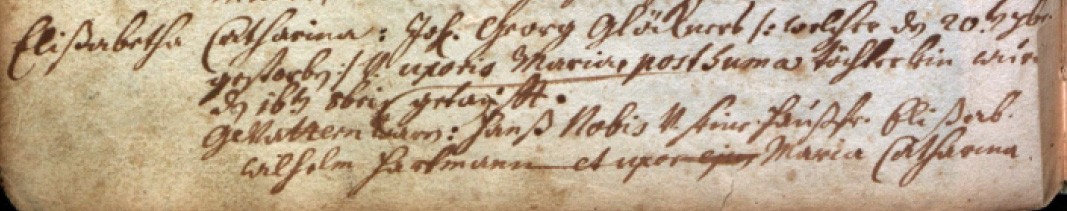 Elißabetha Catharina: Joh. Georg Glöckners /: welcher dn 20.t 7br.
gestorben :/ V. uxoris Mariae posthuma töchterlein wurd
dn 16tn 8bris getaufft.
Gevattern warn: Hanß Nobis V. seine Haußfr. Elißab.
Wilhelm Hartmann et uxor ejus Maria Catharina.